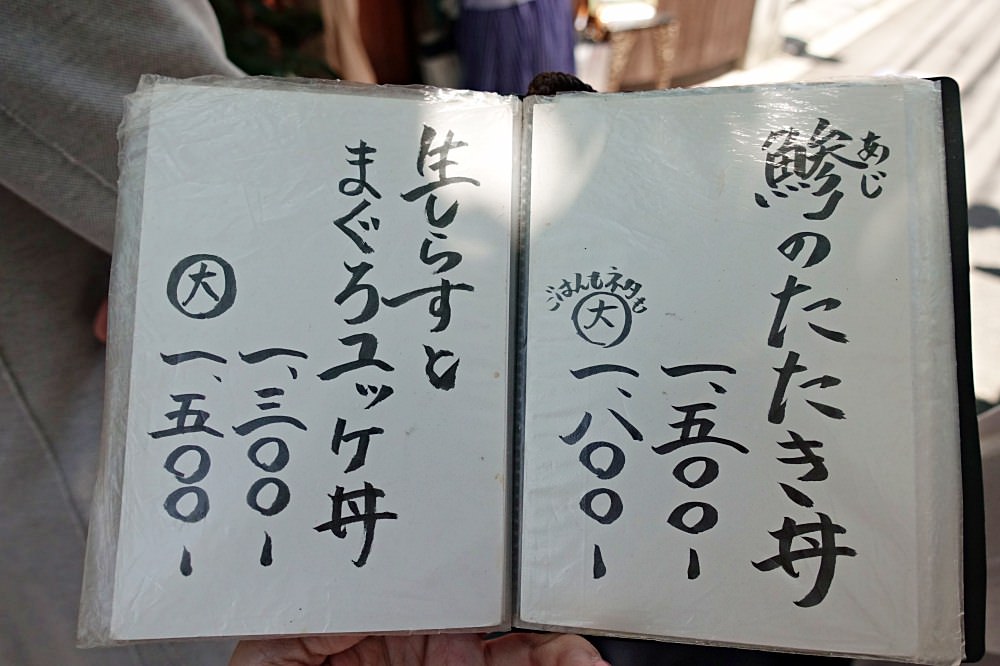 あじ
鯵のたたき丼
一、五〇〇ー
ごはんもネタも
大
一、八〇〇ー
生しらすと
まぐろユッケ丼
一、三〇〇ー
大
一、五〇〇ー